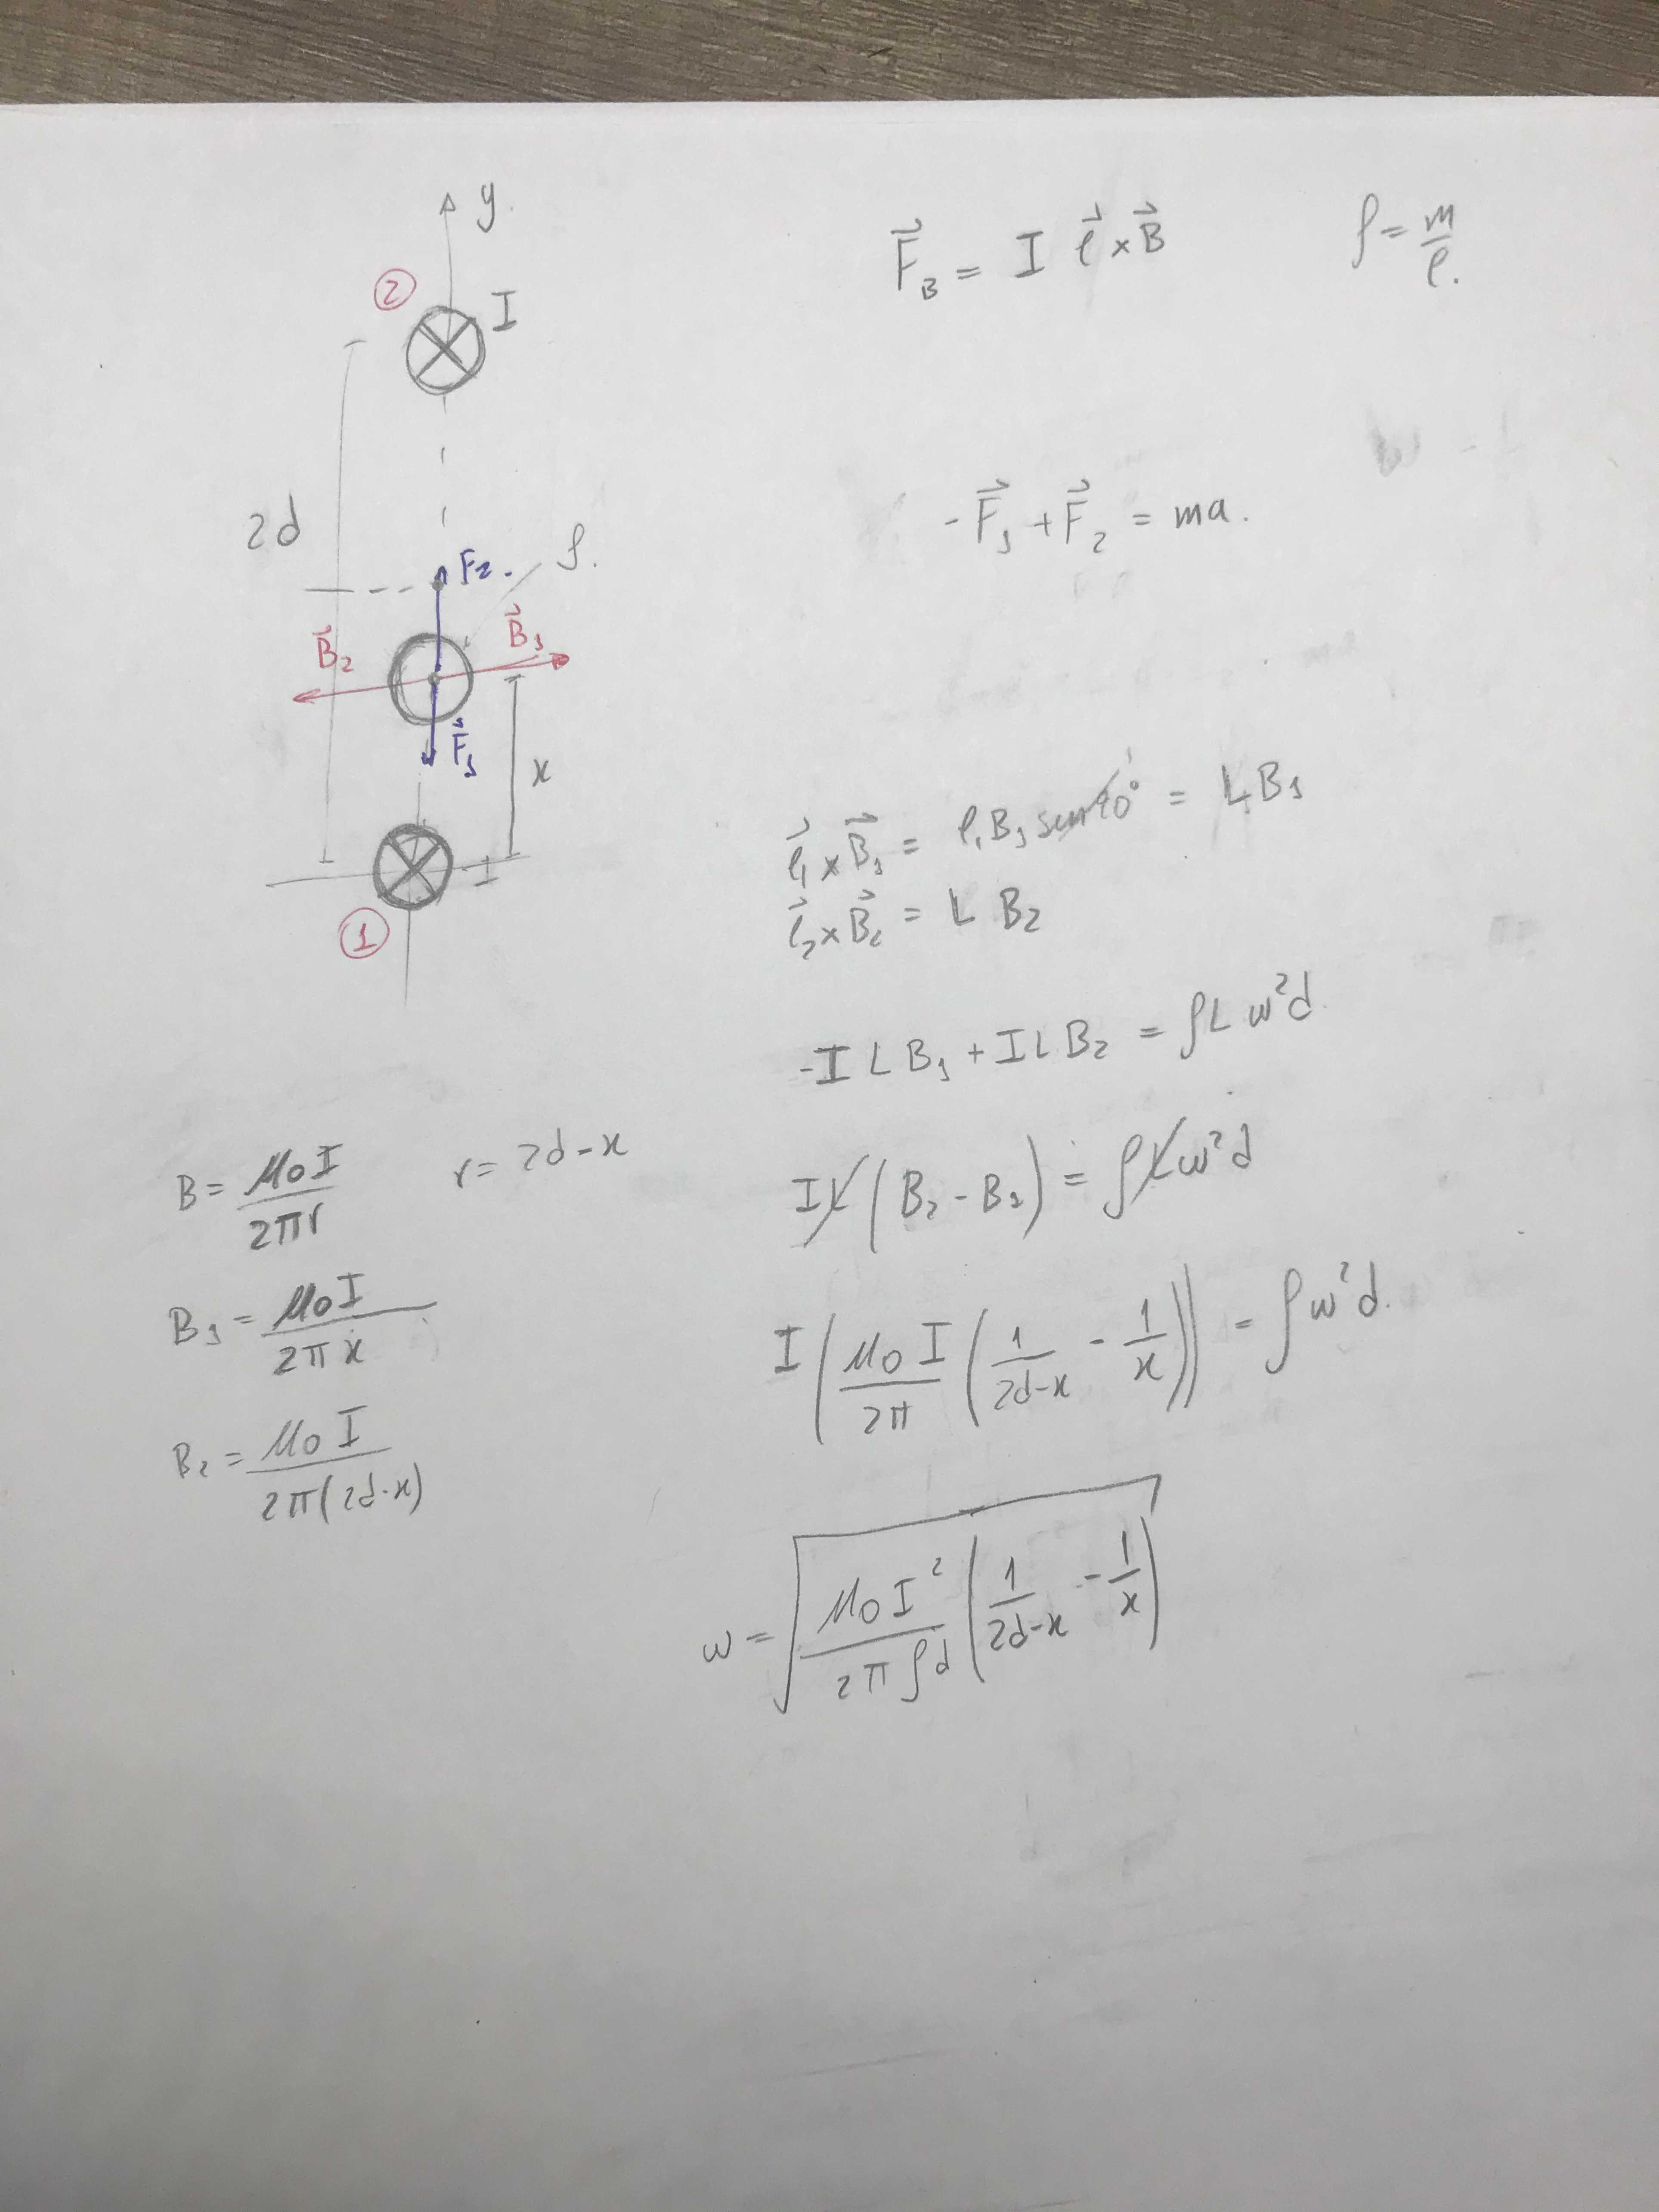 y.
② I
2d
F₂.
ρ.
B⃗₂
B⃗₁
F⃗₁
x
I
①
F⃗_B = I ℓ⃗ × B⃗
ρ = m/ℓ.
-F⃗₁ + F⃗₂ = ma.
ℓ⃗₁ × B⃗₁ = ℓ₁ B₁ sen 90° = L B₁
1
ℓ⃗₂ × B⃗₂ = L B₂
-I L B₁ + I L B₂ = ρ L w² d
I L (B₂ - B₁) = ρ L w² d
I (μ₀ I / 2π (1/(2d-x) - 1/x)) = ρ w² d.
w = √(μ₀ I² / 2πρd (1/(2d-x) - 1/x))
B = μ₀ I / 2πr
r = 2d-x
B₁ = μ₀ I / 2π x
B₂ = μ₀ I / 2π(2d-x)